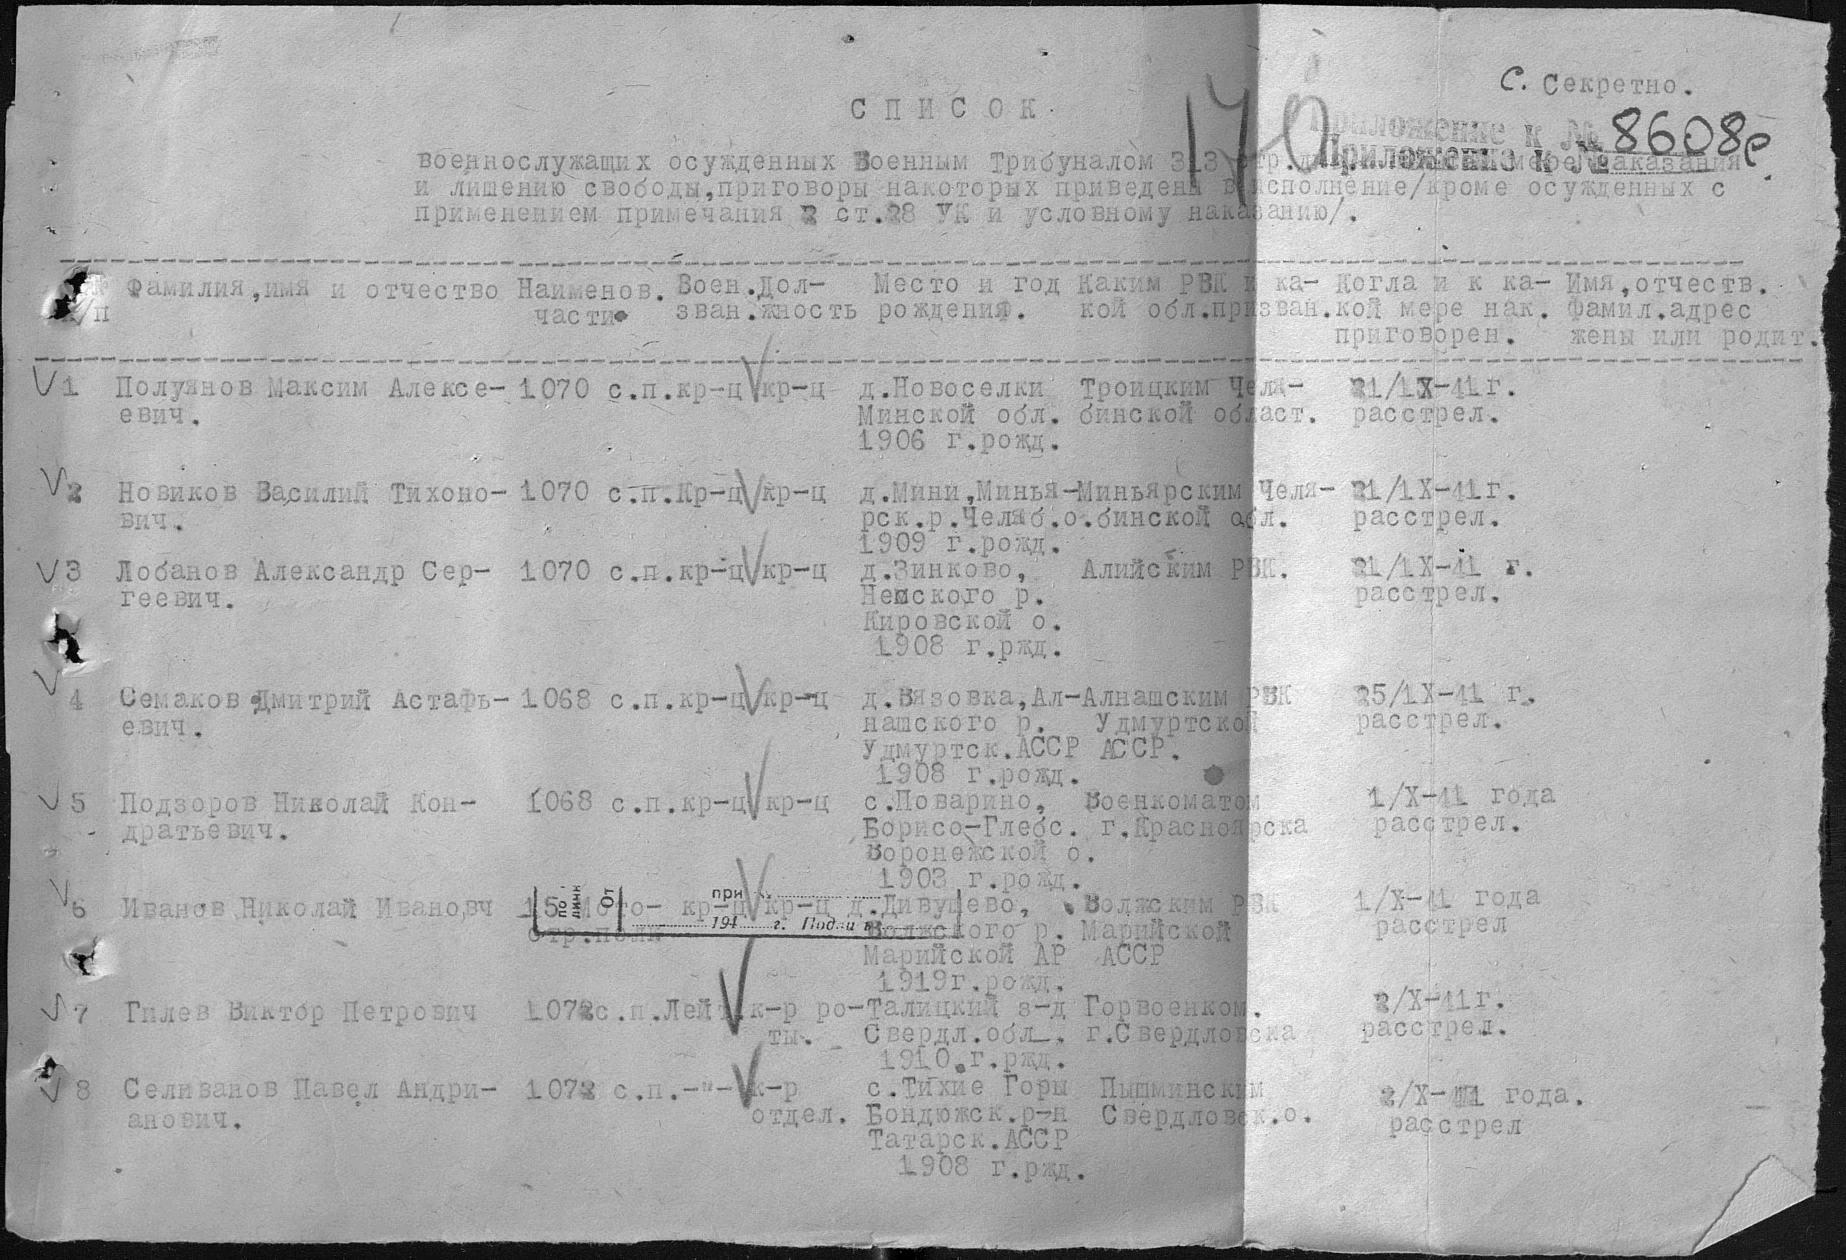 С. Секретно.
СПИСОК
170
Приложение к № 8608р
Приложение к №
военнослужащих осужденных Военным Трибуналом 313 стр. мере наказания
и лишению свободы,приговоры накоторых приведены в исполнение/кроме осужденных с
применением примечания 2 ст.28 УК и условному наказанию/.
Фамилия,имя и отчество Наименов. Воен.Дол- Место и год Каким РВК и ка- Когда и к ка- Имя,отчеств.
п/п части зван.жность рождения. кой обл.призван.кой мере нак. фамил.адрес
приговорен. жены или родит.
1 Полуянов Максим Алексе- 1070 с.п.кр-ц кр-ц д.Новоселки Троицким Челя- 21/1Х-41г.
евич. Минской обл. бинской област. расстрел.
1906 г.рожд.
2 Новиков Василий Тихоно- 1070 с.п.Кр-ц кр-ц д.Мини,Минья-Миньярским Челя- 21/1Х-41г.
вич. рск.р.Челяб.о.бинской обл. расстрел.
1909 г.рожд.
3 Лобанов Александр Сер- 1070 с.п.кр-ц кр-ц д.Зинково, Алийским РВК. 21/1Х-41 г.
геевич. Немского р. расстрел.
Кировской о.
1908 г.ржд.
4 Семаков Дмитрий Астафь- 1068 с.п.кр-ц кр-ц д.Вязовка,Ал-Алнашским РВК 25/1Х-41 г.
евич. нашского р. Удмуртской расстрел.
Удмуртск.АССР АССР.
1908 г.рожд.
5 Подзоров Николай Кон- 1068 с.п.кр-ц кр-ц с.Поварино, Военкоматом 1/Х-41 года
дратьевич. Борисо-Глебс. г.Красноярска расстрел.
Воронежской о.
1903 г.рожд.
по линк От при
6 Иванов Николай Ивановч 15 Мото- кр-ц кр-ц д.Дивушево, Волжским РВК 1/Х-41 года
194 г. Подпи
отр.полк Волжского р. Марийской расстрел
Марийской АР АССР
1919г.рожд.
7 Гилев Виктор Петрович 1072с.п.Лейт к-р ро-Талицкий з-д Горвоенком. 2/Х-41г.
ты. Свердл.обл. г.Свердловска расстрел.
1910.г.ржд.
8 Селиванов Павел Андри- 1072 с.п.-"- к-р с.Тихие Горы Пышминским 2/Х-41 года.
анович. отдел. Бондюжск.р-н Свердловск.о. расстрел
Татарск.АССР
1908 г.ржд.